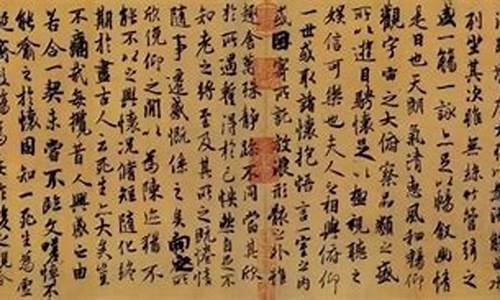 列坐其次雖無絲竹管弦之
盛一觴一詠亦足以暢敘幽情
是日也天朗氣清惠風和暢仰
觀宇宙之大俯察品類之盛
所以遊目騁懷足以極視聽之
娛信可樂也夫人之相與俯仰
一世或取諸懷抱悟言一室之內
或因寄所託放浪形骸之外雖
趣舍萬殊靜躁不同當其欣
於所遇蹔得於己怏然自足不
知老之將至及其所之既惓情
隨事遷感慨係之矣向之所
欣俛仰之閒以為陳迹猶不
能不以之興懷況脩短隨化終
期於盡古人云死生亦大矣豈
不痛哉每攬昔人興感之由
若合一契未嘗不臨文嗟悼不
能喻之於懷固知一死生為虛